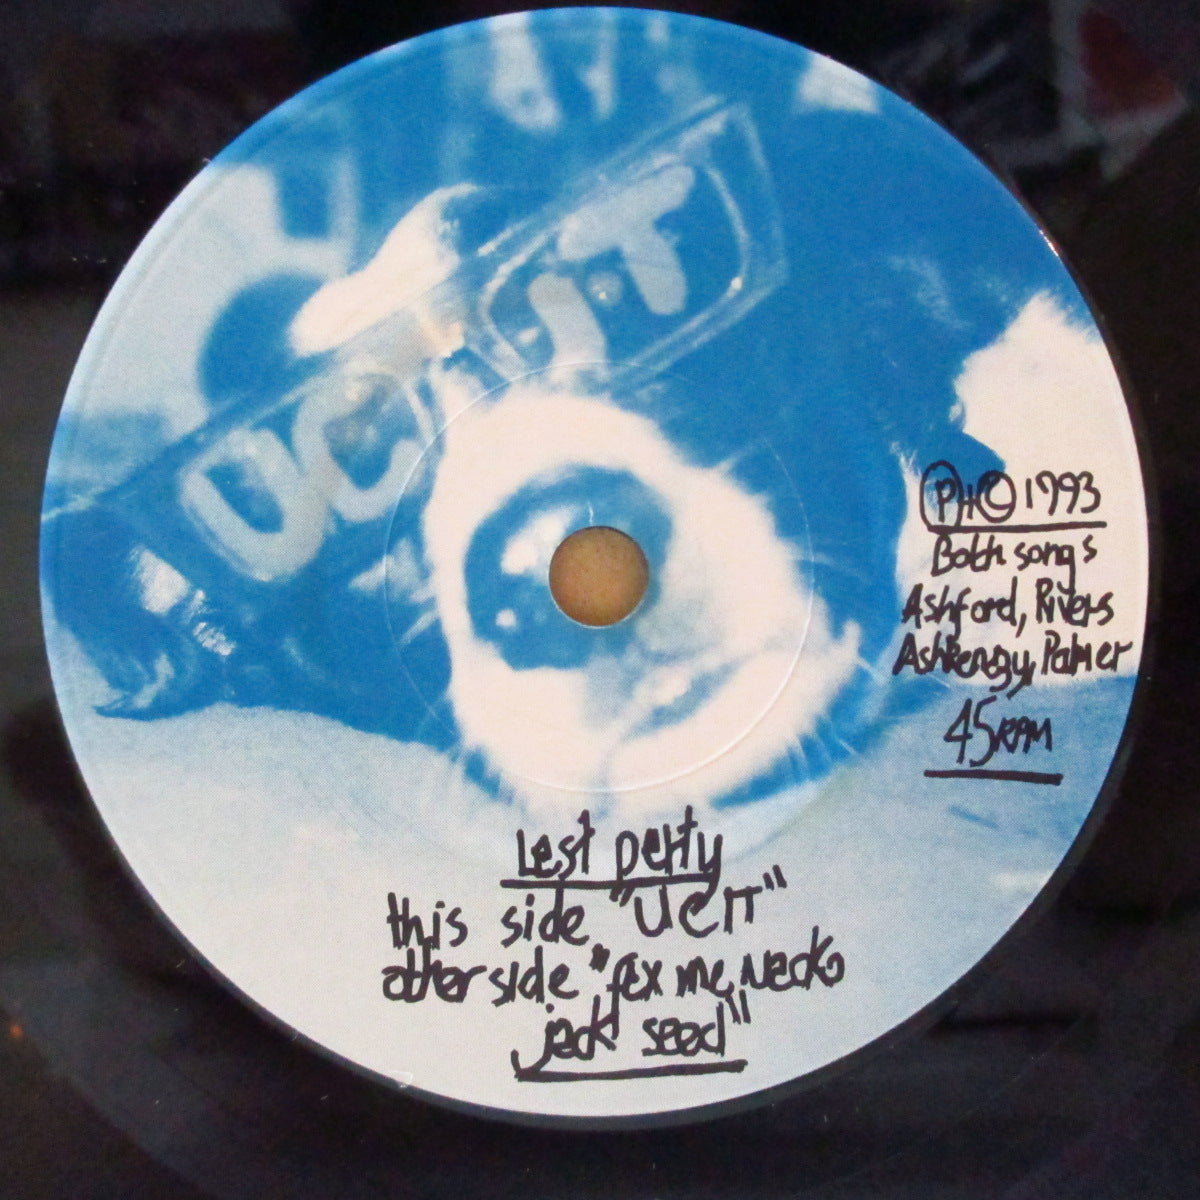 UCIT
Ⓟ+© 1993
Both songs
Ashford, Rivers
Ashkenazy, Palmer
45 RPM
Last party
this side "UCIT"
other side "fix me neck
jack seed"